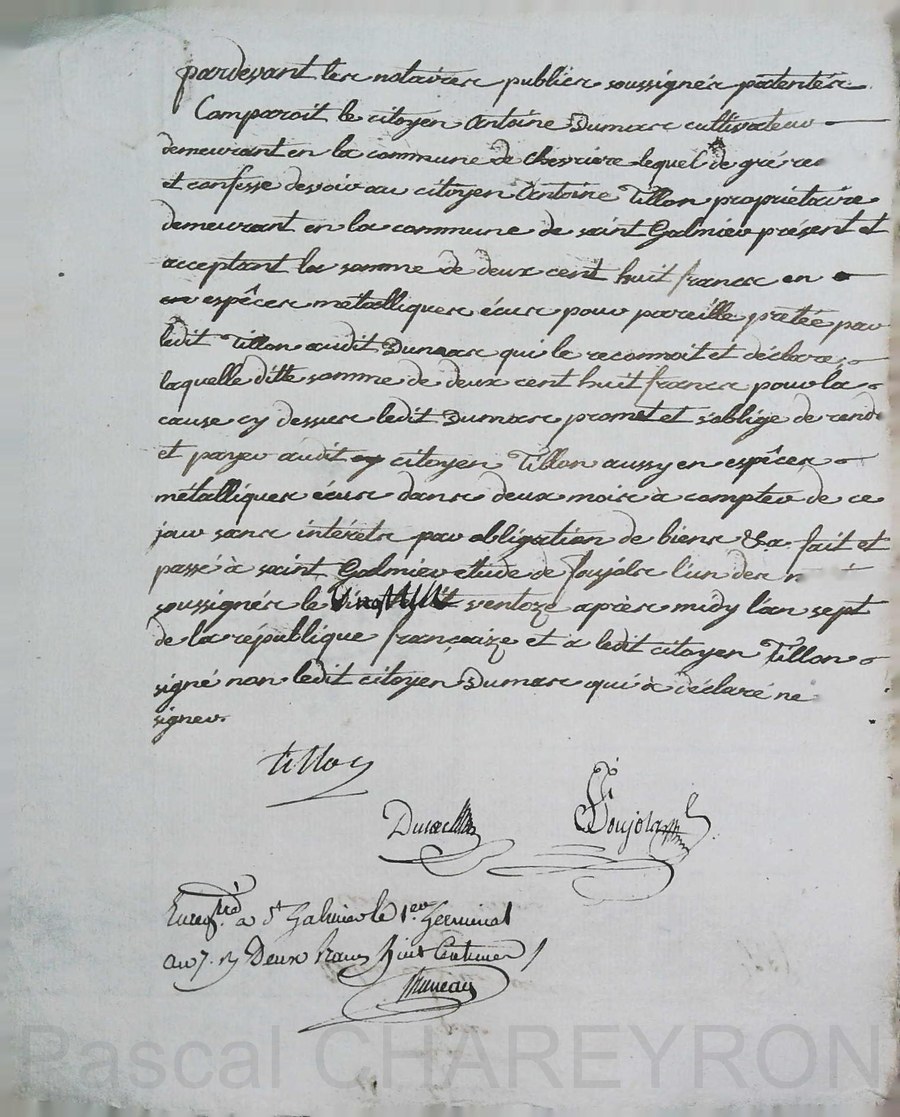 pardevant les notaires publics soussignés patentés
Comparoit le citoyen Antoine Dumas cultivateur
demeurant en la commune de chevriere lequel de gré re
et confesse devoir au citoyen Antoine Tillon propriétaire
demeurant en la commune de saint Galmier présent et
acceptant la somme de deux cent huit francs en
en espêces métalliques écus pour pareille pretée par
ledit Tillon audit Dumas qui le reconnoit et déclare
laquelle ditte somme de deux cent huit francs pour la
cause cy dessus ledit Dumas promet et s'oblige de rend
et payer audit citoyen Tillon aussy en espêces
métalliques écus dans deux mois à compter de ce
jour sans intérêts par obligation de biens &a fait et
passé à saint Galmier etude de Poujols l'un des
soussignés le ventoze après midy l'an sept
de la république françaize et a ledit citoyen Tillon
signé non ledit citoyen Dumas qui a déclaré ne
signer.
tillon
Poujols
Enregtré a St Galmier le 1er Germinal
an 7. Deux francs huit Centimes
Pascal CHAREYRON